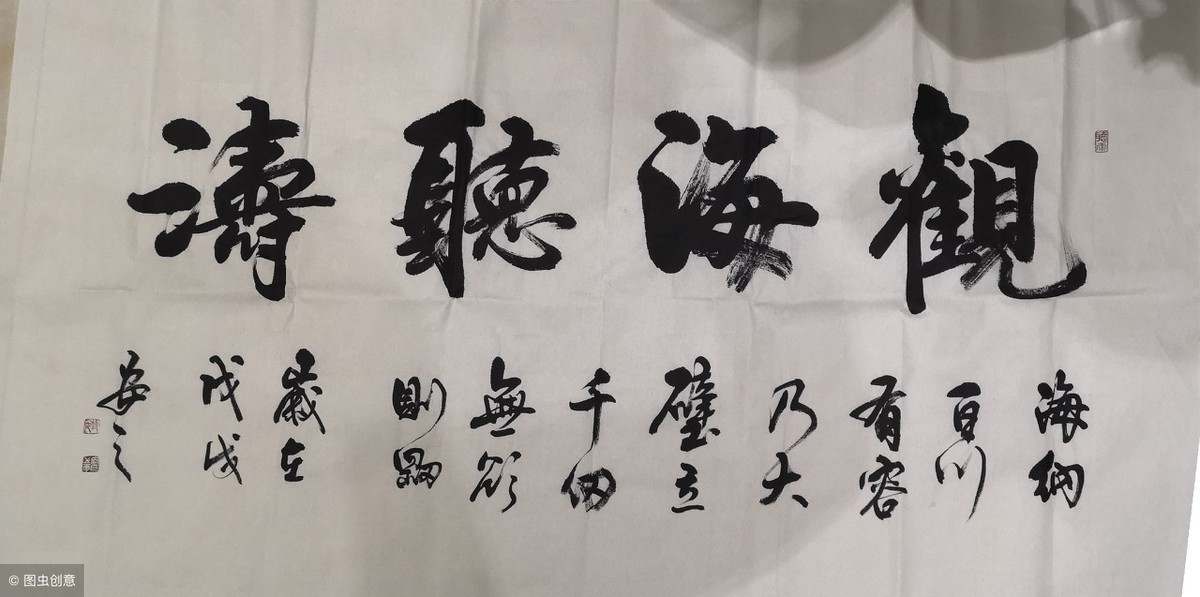 觀海聽濤
海納
百川
有容
乃大
壁立
千仞
無欲
則剛
歲在
戊戌
© 图虫创意